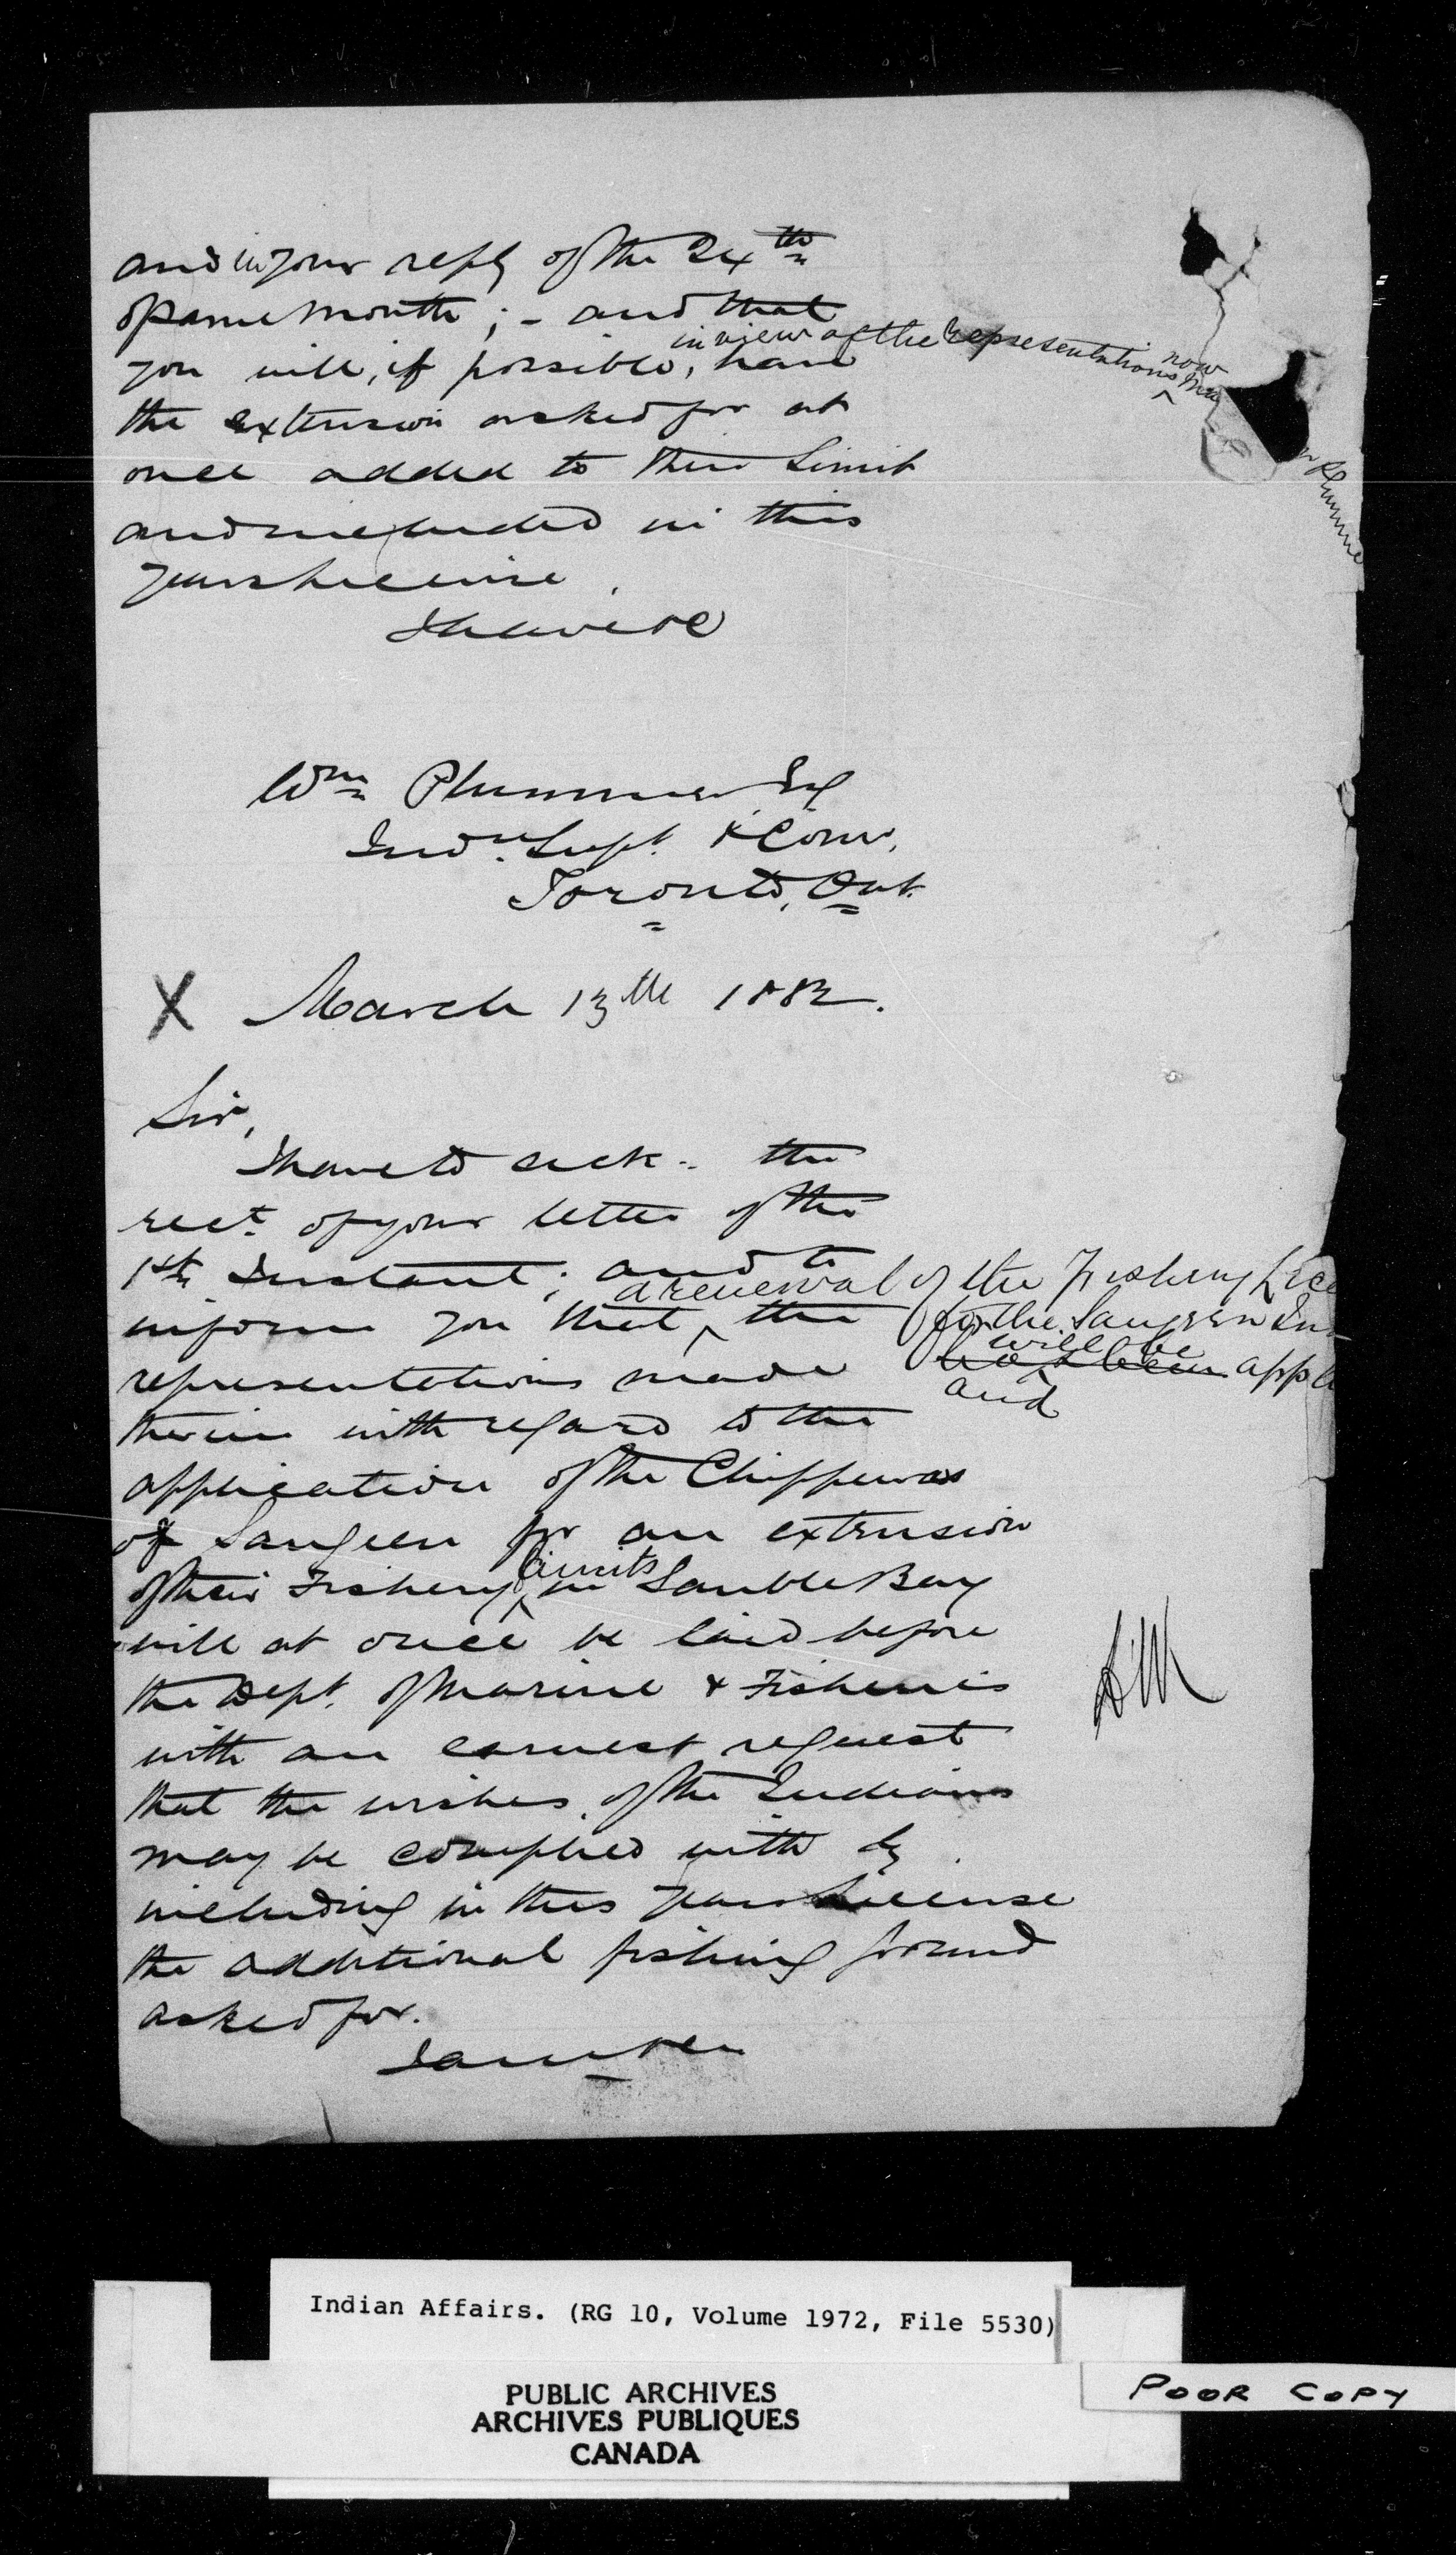 and in your reply of the 24th
of same month ; - and that
in view of the representations now
you will, if possible, have
the extension asked for at
once added to their Limit
and included in this
years license.
I have &c
Wm Plummer Esq
Indn. Supt. & Comr.
Toronto, Ont.
X March 13th 1882.
Sir,
I have to ack. the
rect. of your letter of the
1st Instant ; and to
a renewal of the Fishery
inform you that ^ the
for the Saugeen
will be
has been
representations made
and
therein with regard to the
application of the Chippewas
of Saugeen for an extension
limits
of their Fishery ^ in Sauble Bay
will at once be laid before
the Dept. of Marine & Fisheries
with an earnest request
that the wishes of the Indians
may be complied with by
including in this years License
the additional fishing ground
asked for.
Indian Affairs. (RG 10, Volume 1972, File 5530)
PUBLIC ARCHIVES
ARCHIVES PUBLIQUES
CANADA
POOR COPY